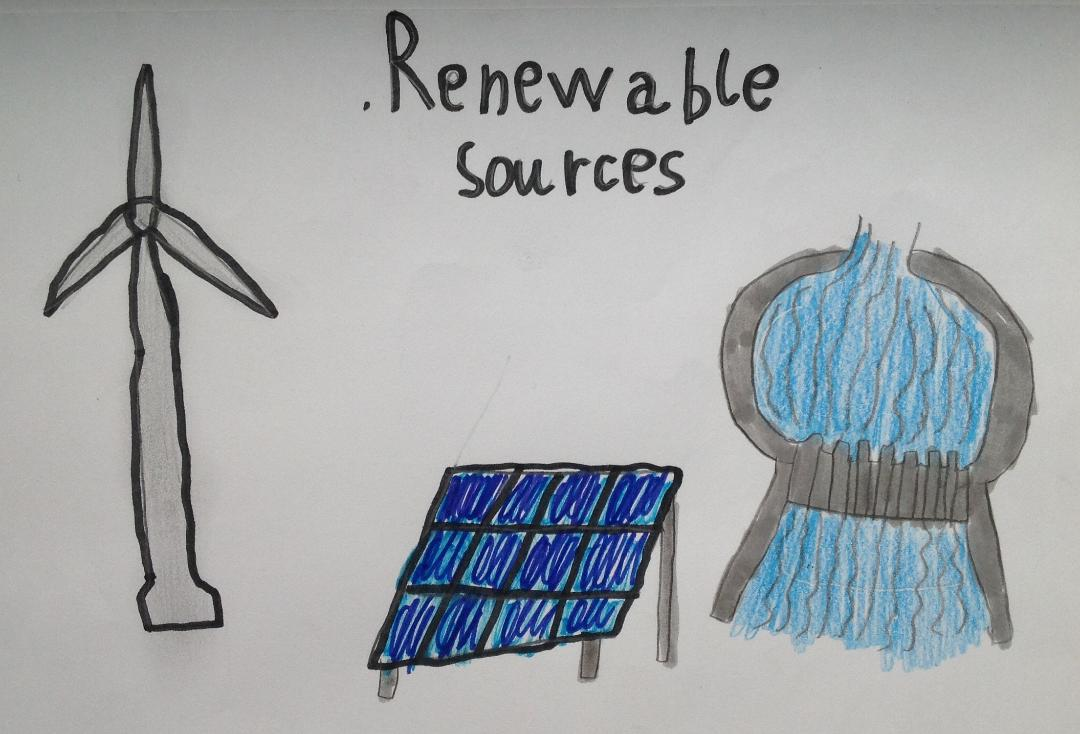 .Renewable
sources